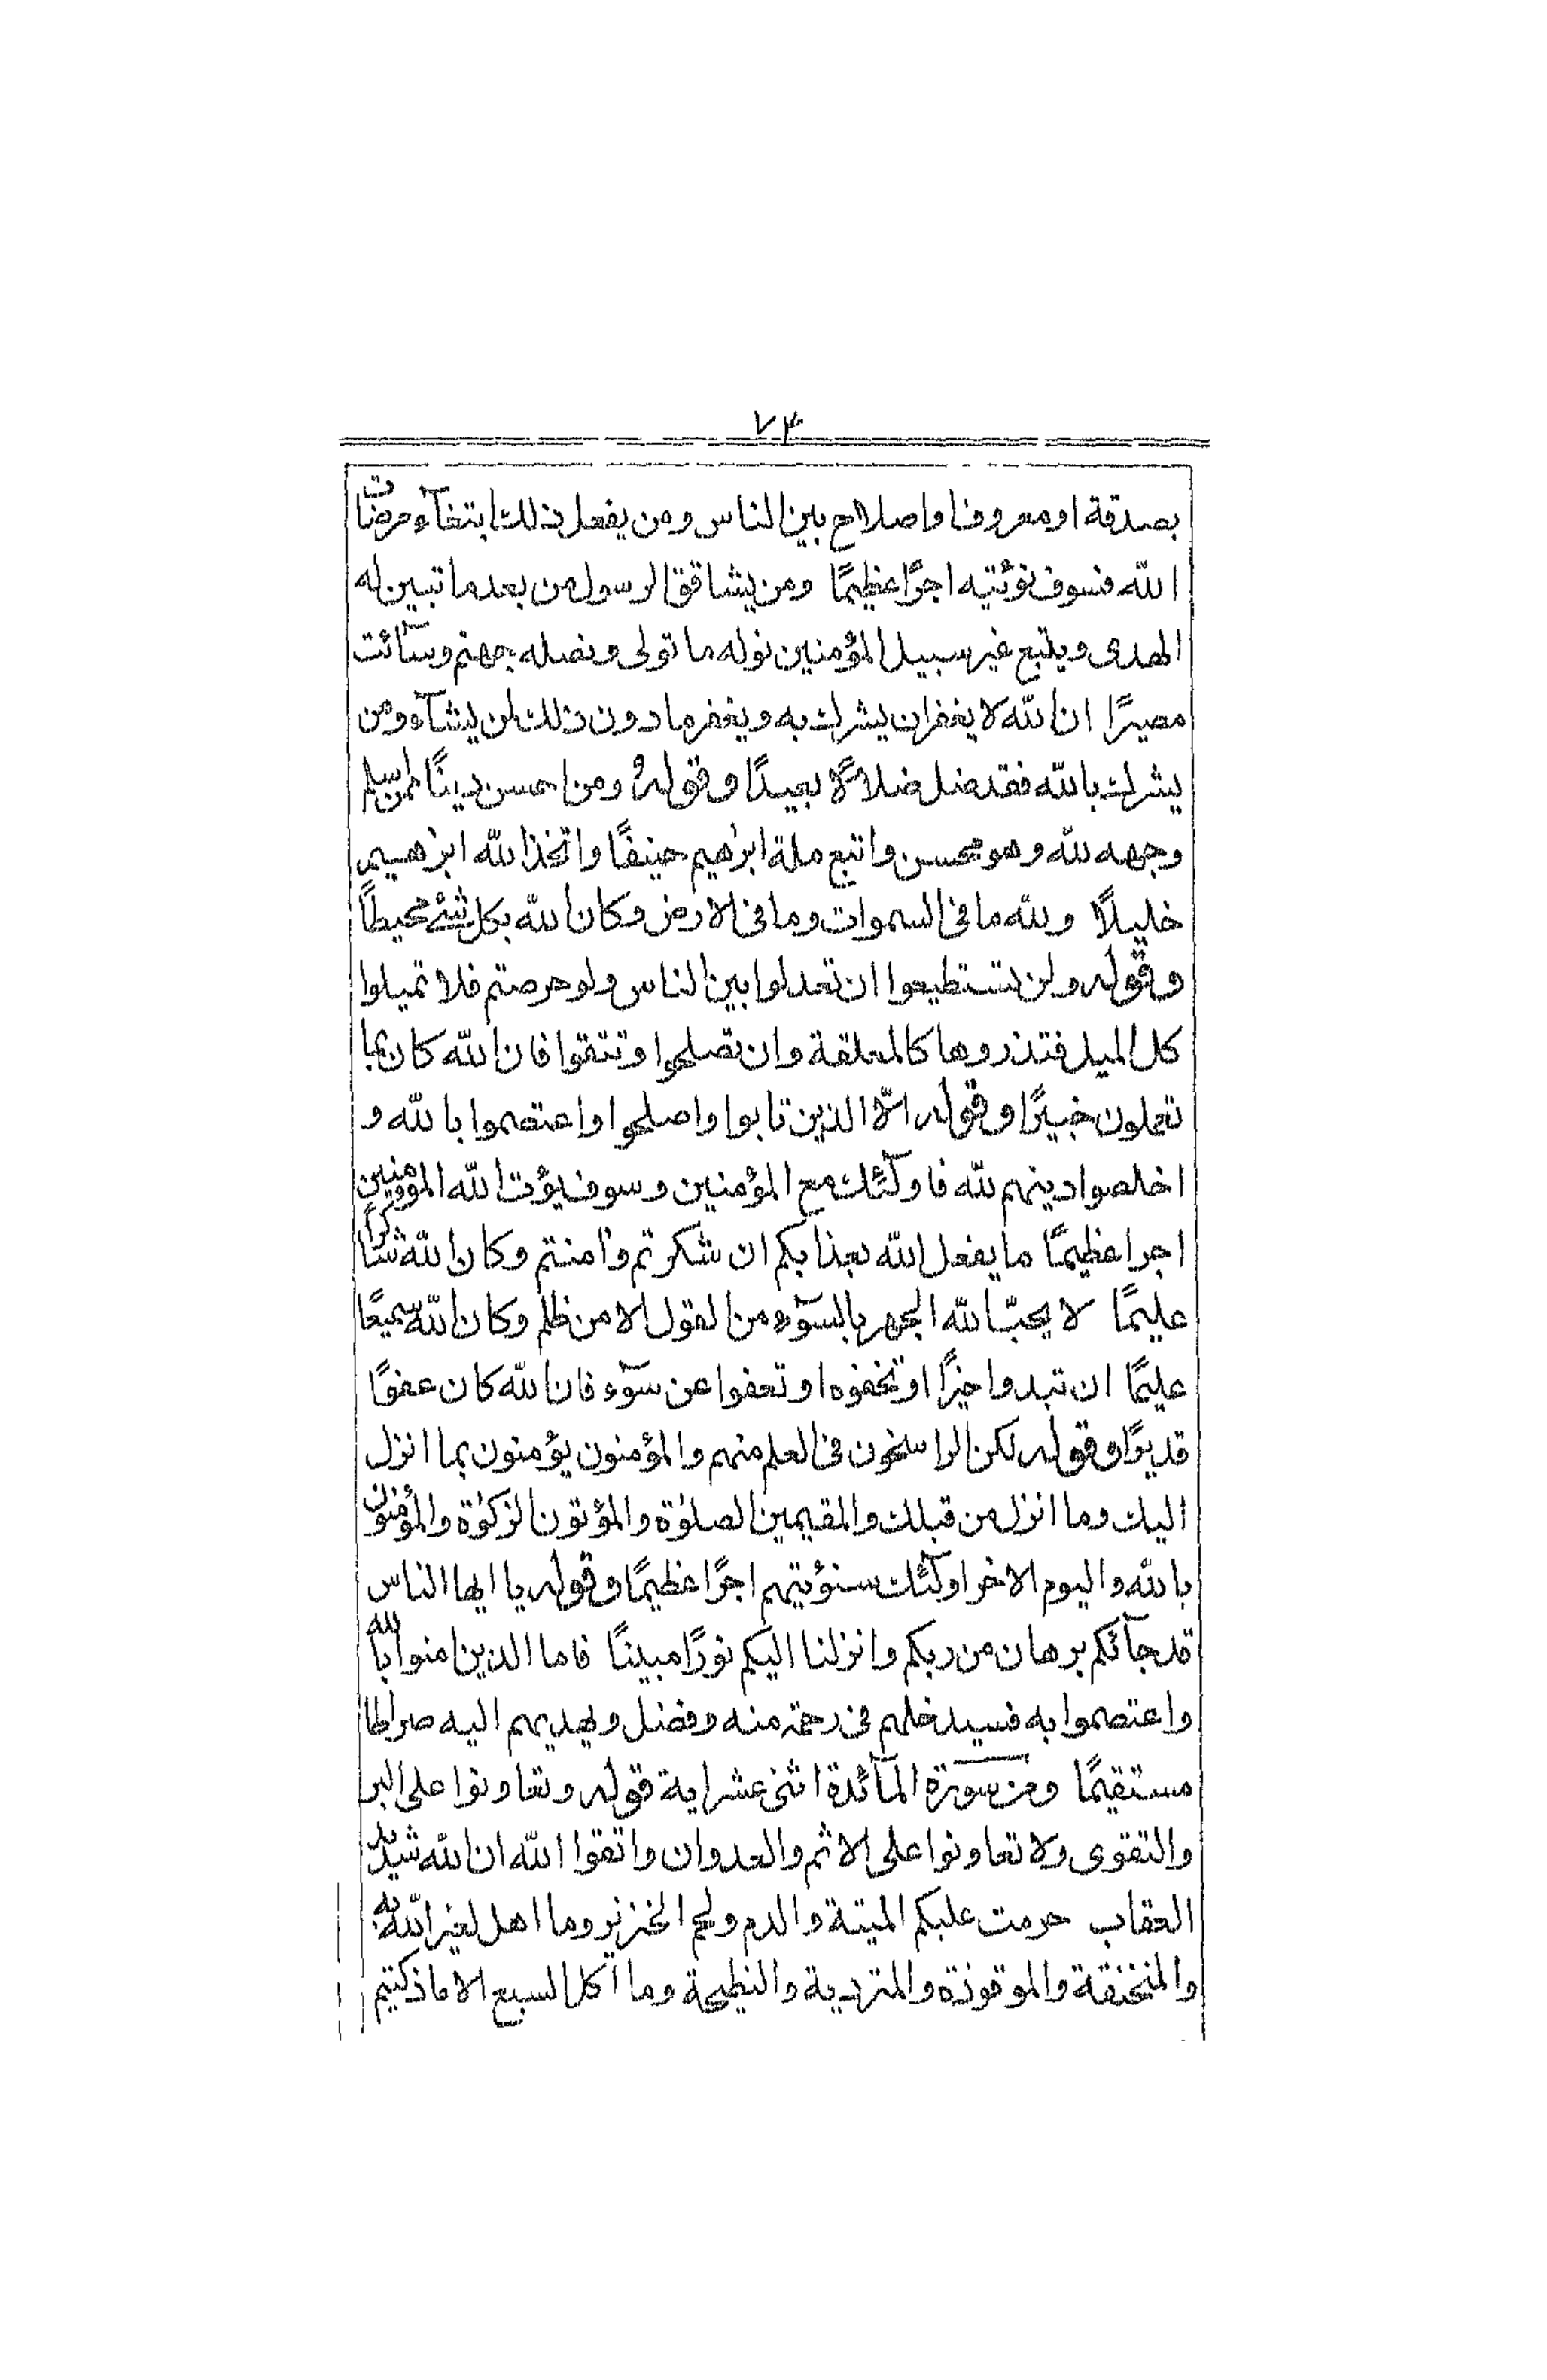 ٧٣
بصدقة او معروف او اصلاح بين الناس ومن يفعل ذلك ابتغآء مرضات
الله فسوف نؤتيه اجرًا عظيمًا ومن يشاقق الرسول من بعد ما تبين له
الهدى ويتبع غير سبيل المؤمنين نوله ما تولى ونصله جهنم وسآئت
مصيرًا ان الله لا يغفر ان يشرك به ويغفر ما دون ذلك لمن يشآء ومن
يشرك بالله فقد ضل ضلالًا بعيدًا وقوله ومن احسن دينًا ممن اسلم
وجهه لله وهو محسن واتبع ملة ابرٰهيم حنيفًا واتخذ الله ابرٰهيم
خليلًا ولله ما فى السموات وما فى الارض وكان الله بكل شئ محيطًا
وقوله ولن تستطيعوا ان تعدلوا بين الناس ولو حرصتم فلا تميلوا
كل الميل فتذروها كالمعلقة وان تصلحوا وتتقوا فان الله كان بما
تعملون خبيرًا وقوله الّا الذين تابوا واصلحوا واعتصموا بالله و
اخلصوا دينهم لله فاولٓئك مع المؤمنين وسوف يؤت الله المؤمنين
اجرا عظيمًا ما يفعل الله بعذابكم ان شكرتم وآمنتم وكان الله شاكرًا
عليمًا لا يحبّ الله الجهر بالسوٓء من القول الا من ظلم وكان الله سميعًا
عليمًا ان تبدوا خيرًا او تخفوه او تعفوا عن سوٓء فان الله كان عفوًا
قديرًا وقوله لكن الراسخون فى العلم منهم والمؤمنون يؤمنون بما انزل
اليك وما انزل من قبلك والمقيمين الصلوٰة والمؤتون الزكوٰة والمؤمنون
بالله واليوم الاخر اولٓئك سنؤتيهم اجرًا عظيمًا وقوله يا ايها الناس
قد جآئكم برهان من ربكم وانزلنا اليكم نورًا مبينًا فاما الذين امنوا بالله
واعتصموا به فسيدخلهم فى رحمة منه وفضل ويهديهم اليه صراطا
مستقيمًا ومن سورة المآئدة اثنى عشر اية قوله وتعاونوا على البر
والتقوى ولا تعاونوا على الاثم والعدوان واتقوا الله ان الله شديد
العقاب حرمت عليكم الميتة والدم ولحم الخنزير وما اهل لغير الله به
والمنخنقة والموقوذة والمتردية والنطيحة وما اكل السبع الا ما ذكيتم